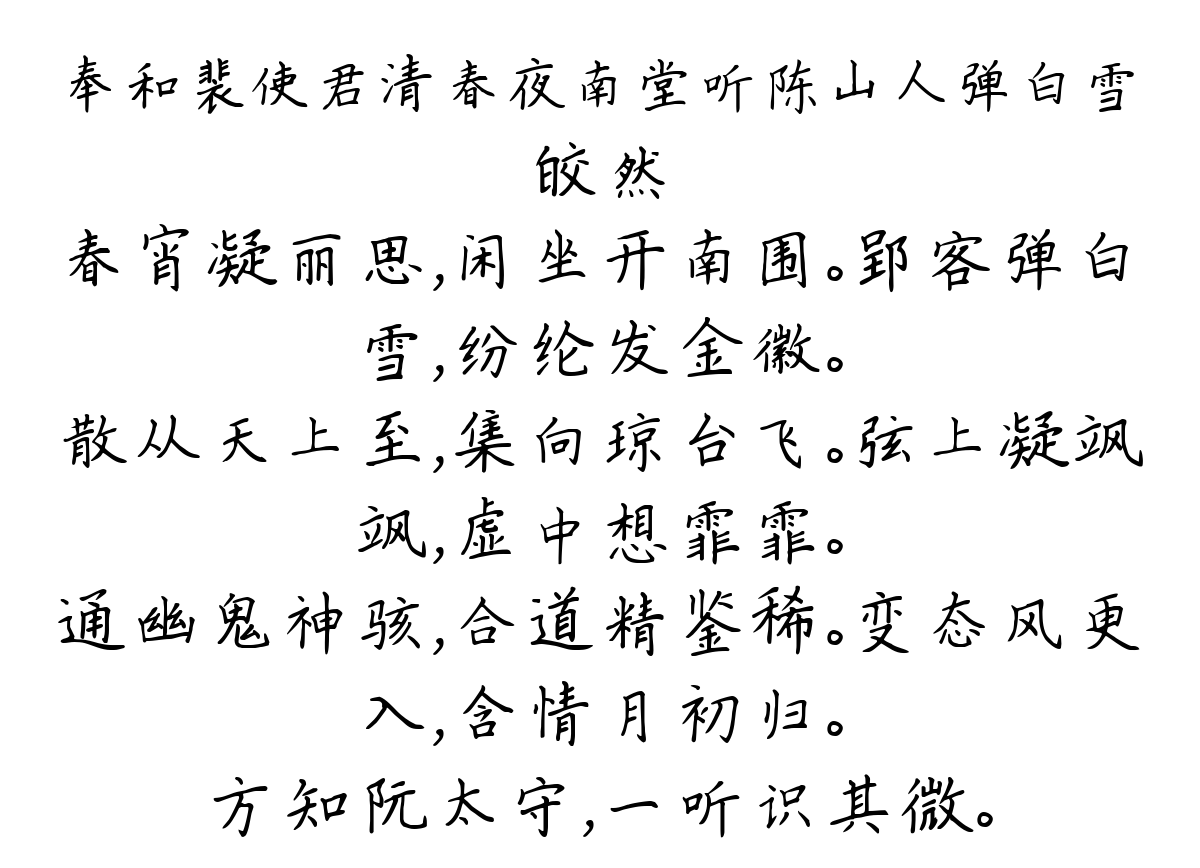 奉和裴使君清春夜南堂听陈山人弹白雪
皎然
春宵凝丽思,闲坐开南围。郢客弹白
雪,纷纶发金徽。
散从天上至,集向琼台飞。弦上凝飒
飒,虚中想霏霏。
通幽鬼神骇,合道精鉴稀。变态风更
入,含情月初归。
方知阮太守,一听识其微。